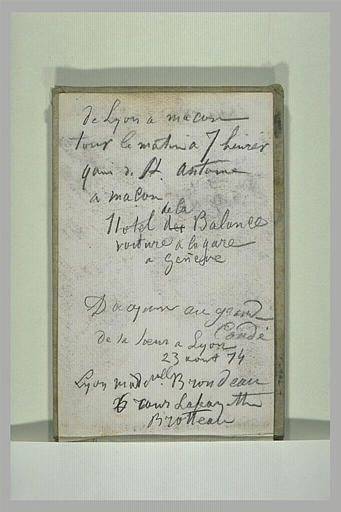 de Lyon a macon
tous le matin a 7 heures
quai de St. Antoine
a macon
Hotel de la Balance
voiture a la gare
a Geneve
au grand
Condé
de la a Lyon
23 aout 74
Lyon Brondeau
6 cours Lafayette
Brotteau